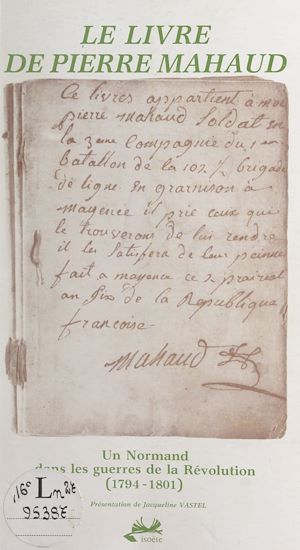 LE LIVRE
DE PIERRE MAHAUD
Ce livres appartient à moi
pierre Mahaud Soldat en
la 3eme Compagnie du 1er
batallon de la 102 ½ brigade
de ligne en grarnison à
mayence il prie ceux qui
le trouverons de lui rendre
il les Satisfera de leur peinnes
fait a mayence ce 2 prairéal
an Six de la Republique
francoise
Mahaud
Un Normand
dans les guerres de la Révolution
(1794-1801)
Présentation de Jacqueline VASTEL
isoète
16° Ln 27
95387